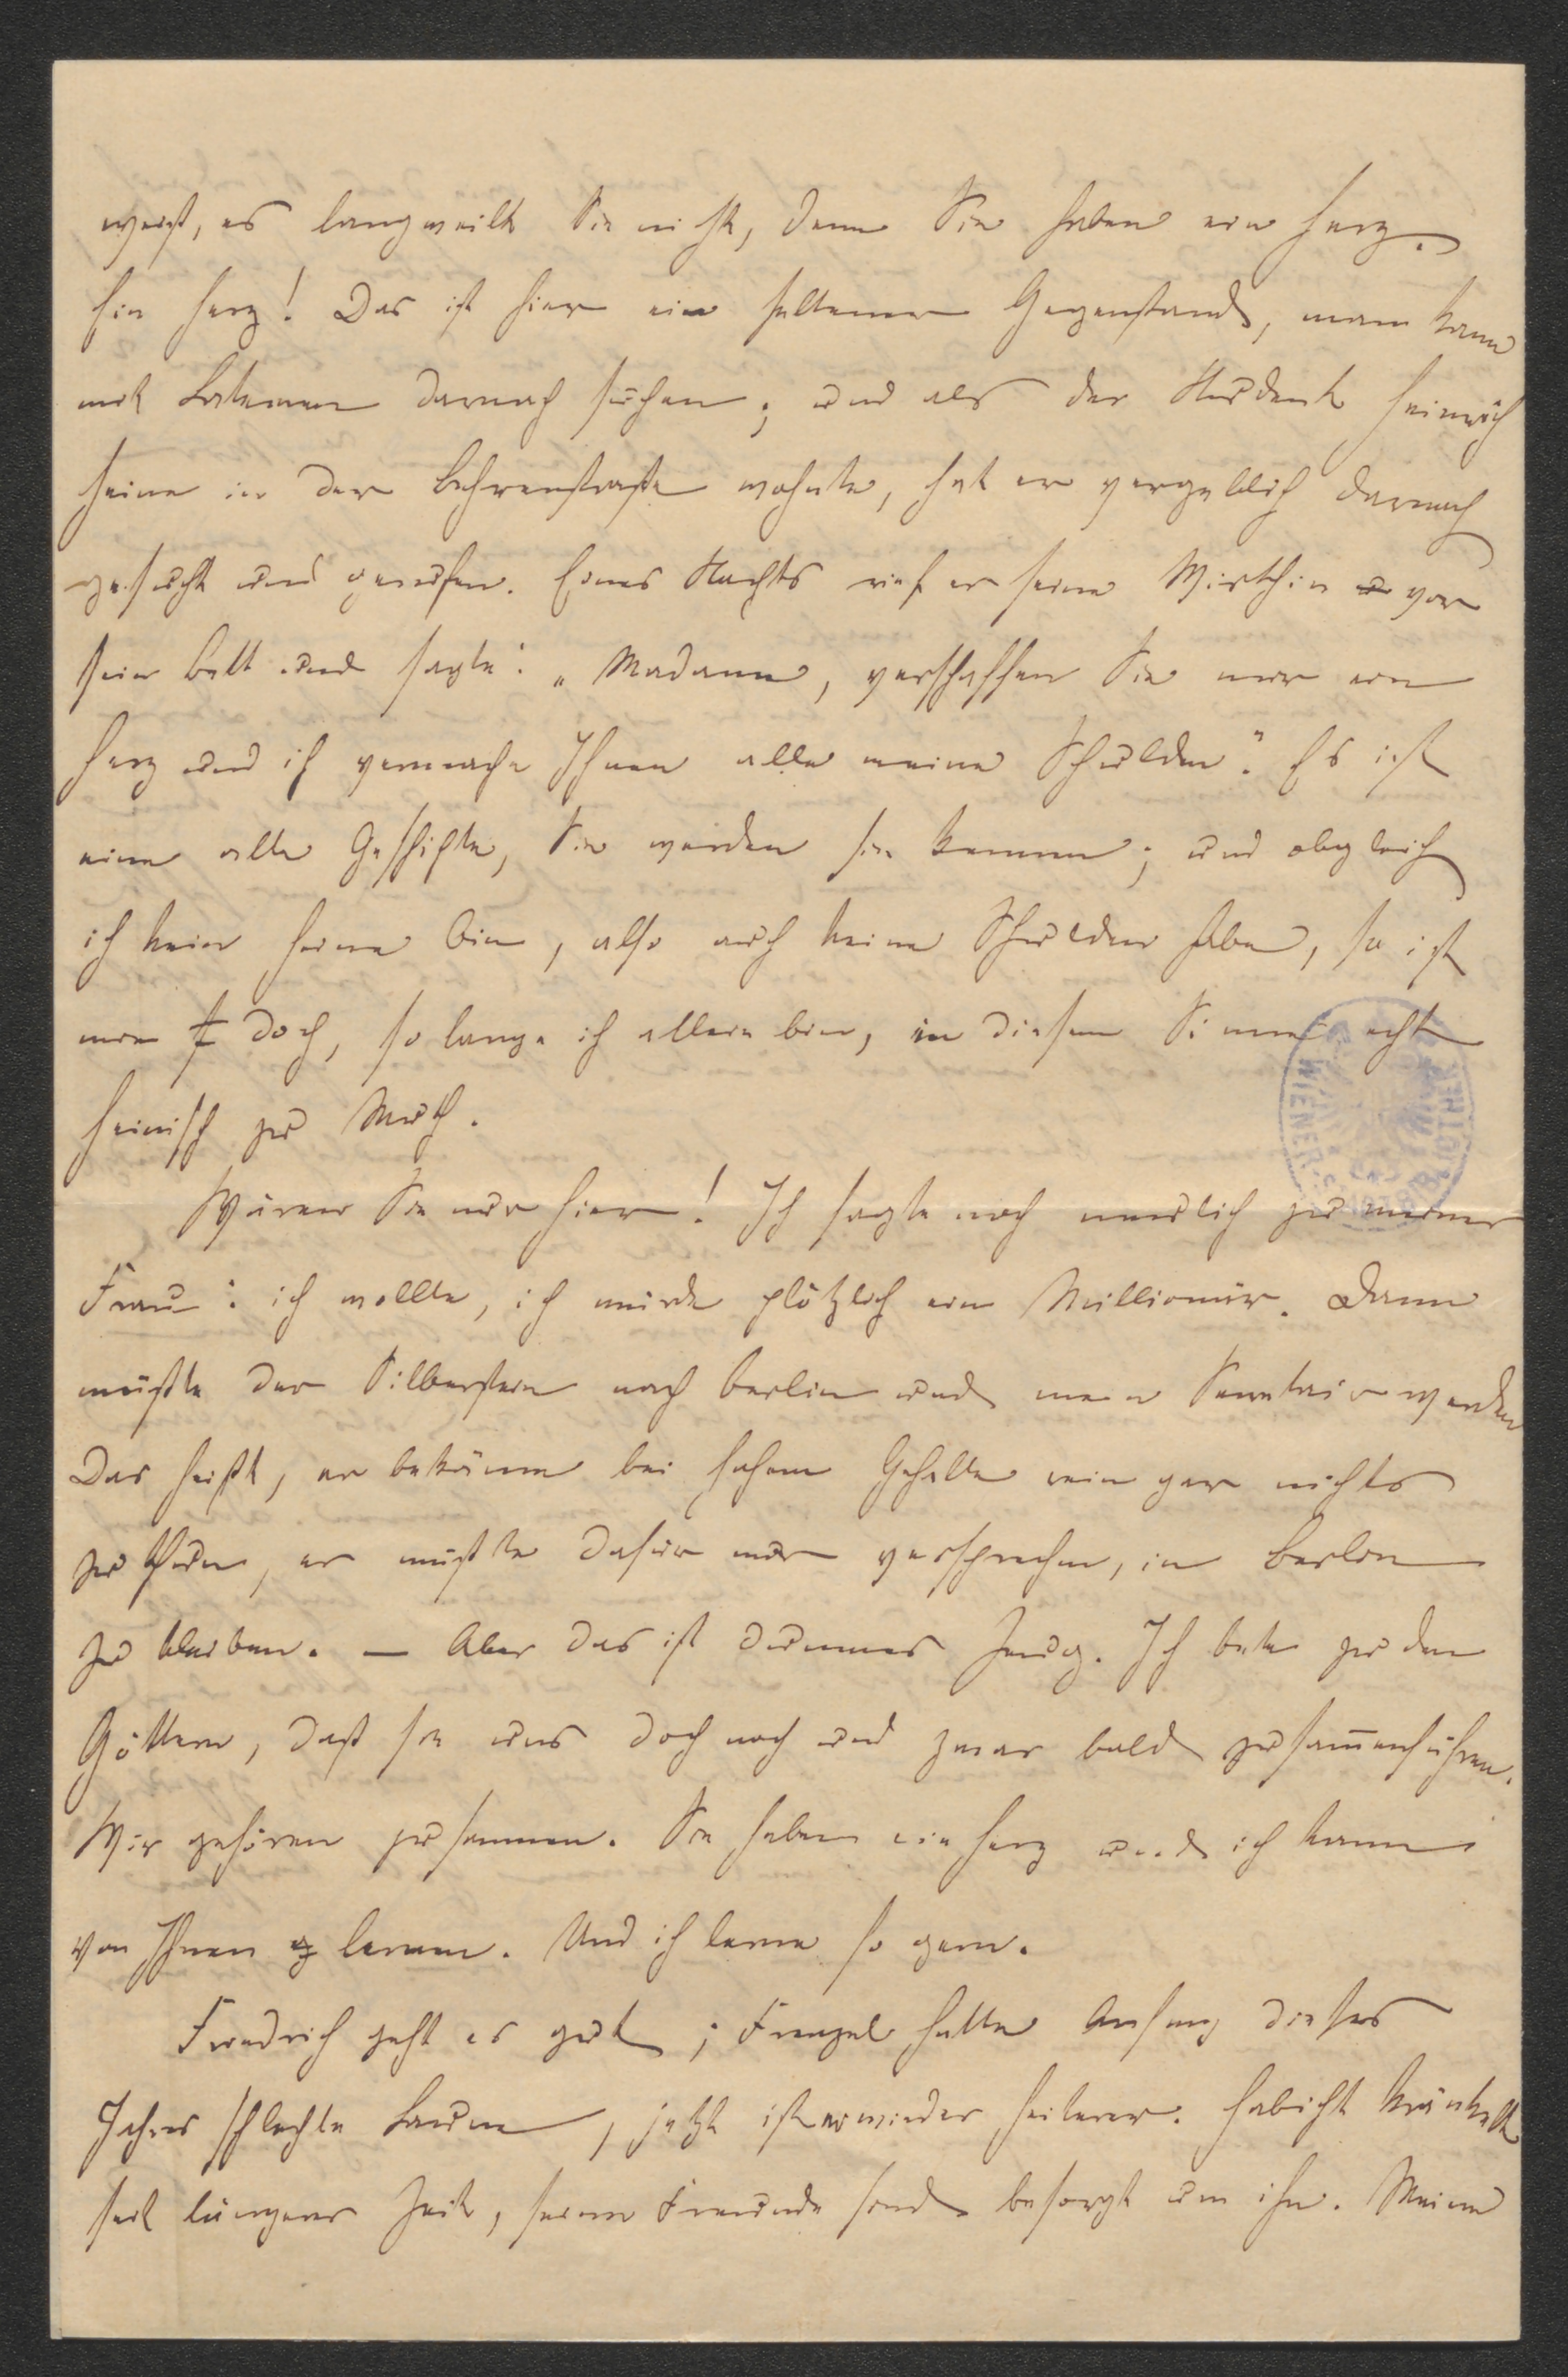 weißt, es langweilt Sie nicht, denn Sie haben ein Herz.
Ein Herz! Das ist hier ein seltener Gegenstand, man kann
mit Laternen darnach suchen; und als der Student Heinrich
Heine in der Behrenstraße wohnte, hat er vergeblich darnach
gesucht und gerufen. Eines Nachts rief er seine Wirthin vor
sein Bett und sagte: „Madame, verschaffen Sie mir ein
Herz und ich vermache Ihnen alle meine Schulden.“ Es ist
eine alte Geschichte, Sie werden sie kennen; und obgleich
ich kein Heine bin, also auch keine Schulden habe, so ist
mir doch, so lange ich allein bin, in diesem Sinne echt
heinisch zu Muth.
Wären Sie nur hier! Ich sagte noch neulich zu meiner
Frau: ich wollte, ich würde plötzlich ein Millionär. Dann
müßte der Silberstein nach Berlin und mein Secretair werden
Das heißt, er bekäme bei hohem Gehalte rein gar nichts
zu thun, er müßte dafür nur versprechen, in Berlin
zu bleiben. — Aber das ist dummes Zeug. Ich bete zu den
Göttern, daß sie uns doch noch und zwar bald zusam̅enführen.
Wir gehören zusammen. Sie haben ein Herz und ich kann
von Ihnen lernen. Und ich lerne so gern.
Friedrich geht es gut; Frenzel hatte Anfang dieses
Jahres schlechte Laune, jetzt ist er wieder heiterer. Habicht kränkelt
seit längerer Zeit, seine Freunde sind besorgt um ihn. Meine
WIENER BIBLIOTHEK